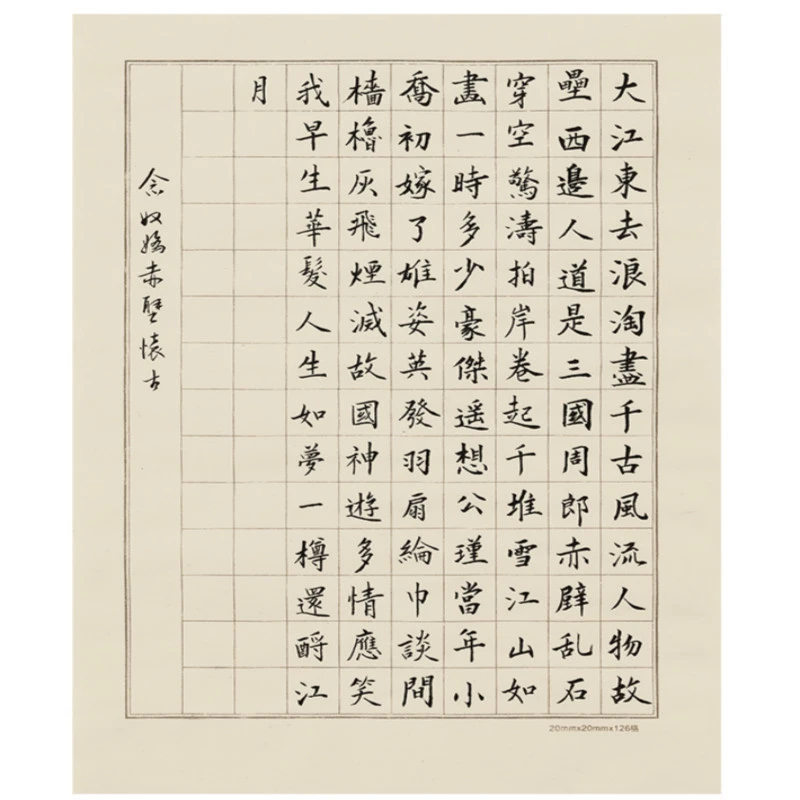 大江東去浪淘盡千古風流人物故
壘西邊人道是三國周郎赤壁乱石
穿空驚濤拍岸卷起千堆雪江山如
畫一時多少豪傑遥想公瑾當年小
喬初嫁了雄姿英發羽扇綸巾談間
檣櫓灰飛煙滅故國神遊多情應笑
我早生華髮人生如夢一樽還酹江
月
念奴嬌赤壁懷古
20mmx20mmx126格